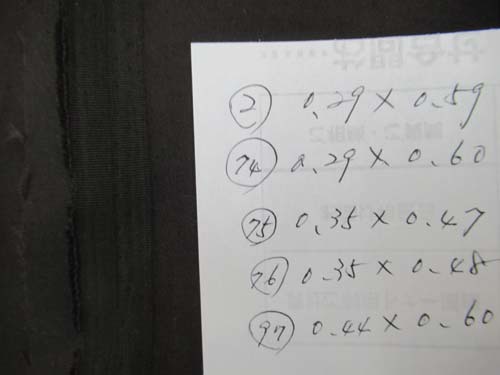 ② 0.29 × 0.59
㉔ 0.29 × 0.60
75 0.35 × 0.47
76 0.35 × 0.48
97 0.44 × 0.60